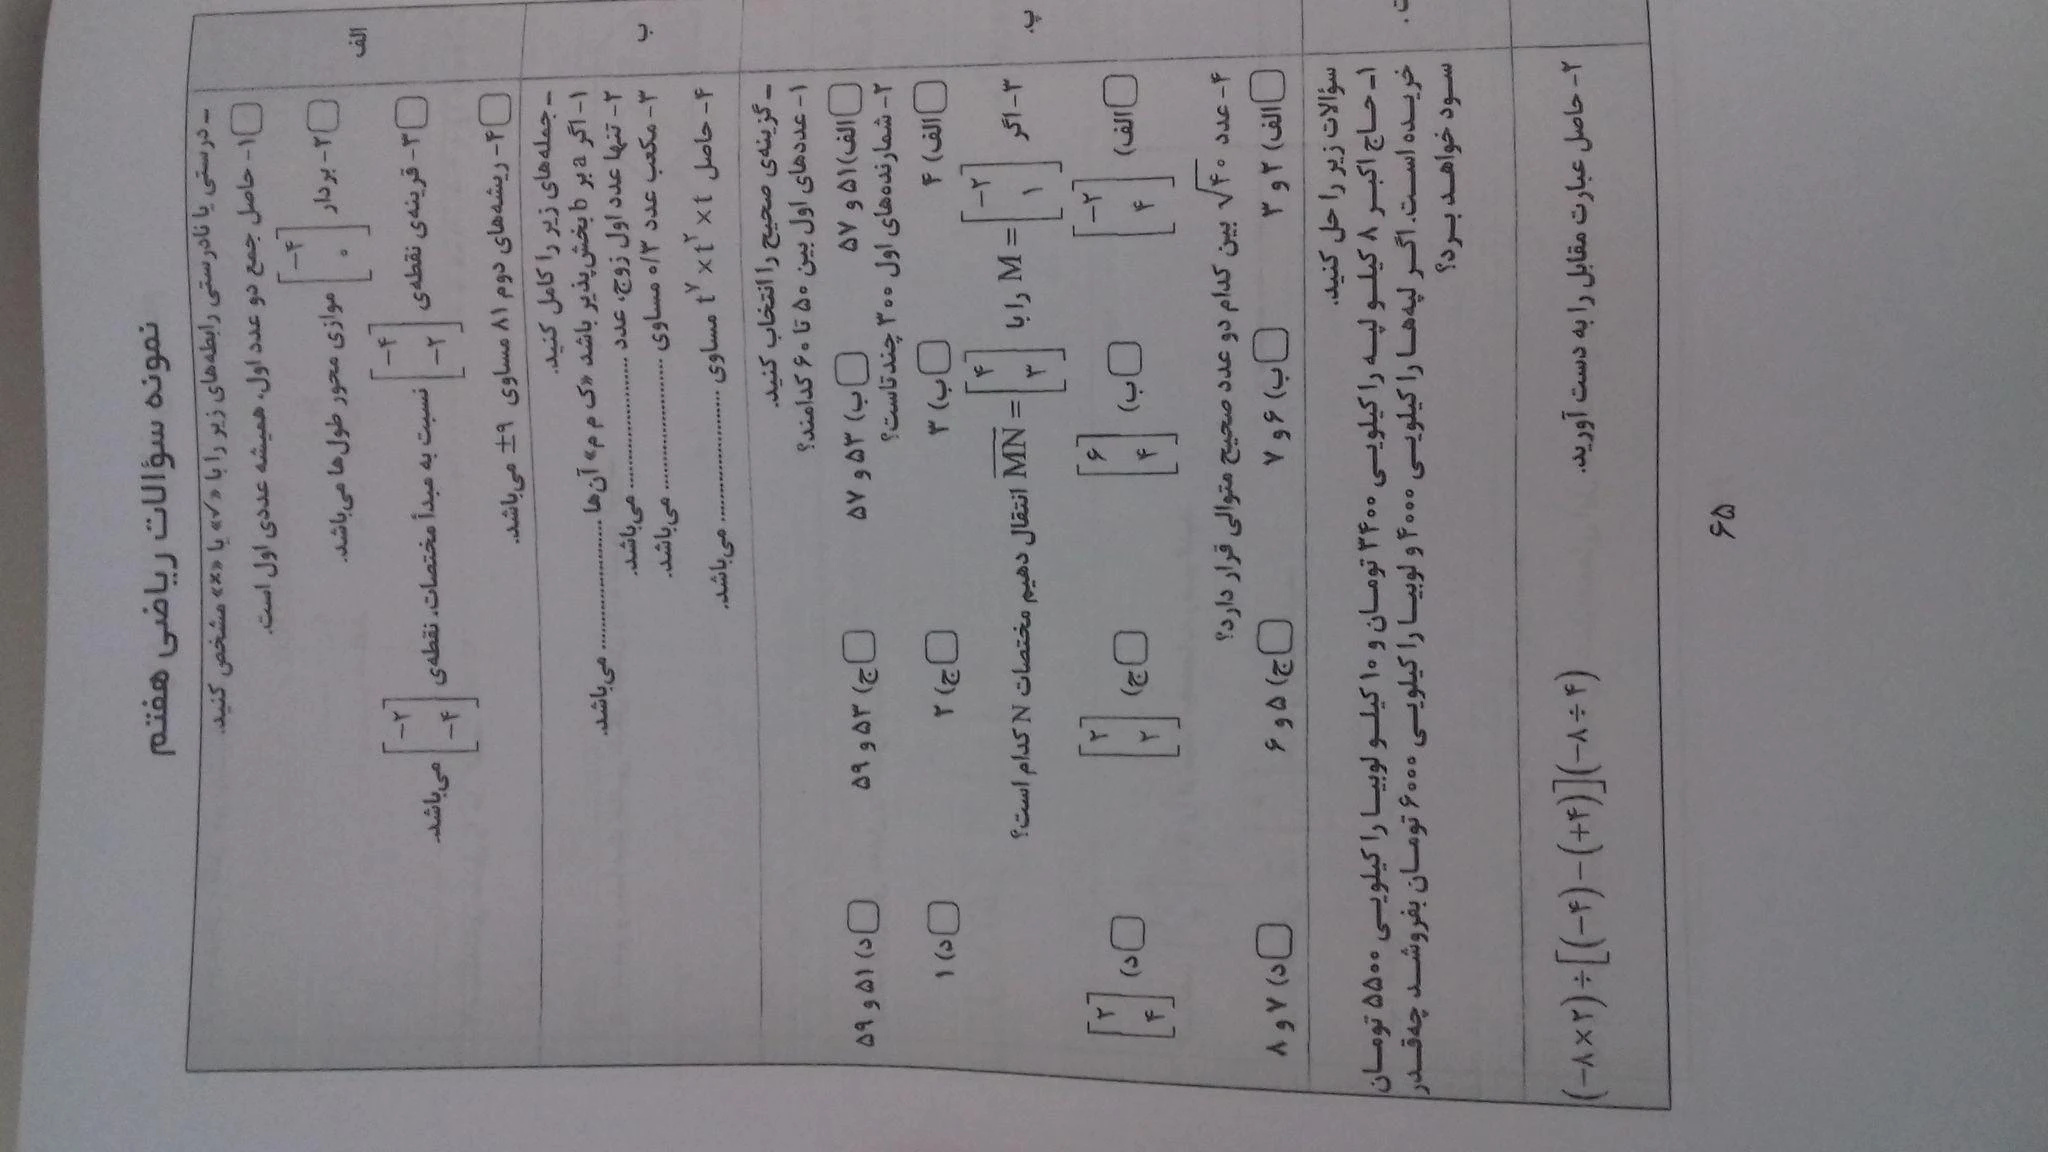 نمونه سؤالات ریاضی هفتم
الف
ـ درستی یا نادرستی رابطه‌های زیر را با «✓» یا «×» مشخص کنید.
۱- حاصل جمع دو عدد اول، همیشه عددی اول است.
۲- بردار [−۴ ۰] موازی محور طول‌ها می‌باشد.
۳- قرینه‌ی نقطه‌ی [−۴ −۲] نسبت به مبدأ مختصات، نقطه‌ی [−۲ −۴] می‌باشد.
۴- ریشه‌های دوم ۸۱ مساوی ±۹ می‌باشد.
ب
ـ جمله‌های زیر را کامل کنید.
۱- اگر a بر b بخش‌پذیر باشد «ک م م» آن‌ها .................... می‌باشد.
۲- تنها عدد اول زوج، عدد .................... می‌باشد.
۳- مکعب عدد ۰/۳ مساوی .................... می‌باشد.
۴- حاصل t^۷ × t^۲ × t مساوی .................... می‌باشد.
پ.
ـ گزینه‌ی صحیح را انتخاب کنید.
۱- عددهای اول بین ۵۰ تا ۶۰ کدامند؟
الف) ۵۱ و ۵۷ ب) ۵۳ و ۵۷ ج) ۵۳ و ۵۹ د) ۵۱ و ۵۹
۲- شمارنده‌های اول ۳۰۰ چندتاست؟
الف) ۴ ب) ۳ ج) ۲ د) ۱
۳- اگر M = [−۲ ۱] را با MN = [۴ ۳] انتقال دهیم مختصات N کدام است؟
الف) [−۲ ۴] ب) [۶ ۴] ج) [۲ ۲] د) [۲ ۴]
۴- عدد √۴۰ بین کدام دو عدد صحیح متوالی قرار دارد؟
الف) ۲ و ۳ ب) ۶ و ۷ ج) ۵ و ۶ د) ۷ و ۸
سؤالات زیر را حل کنید.
۱- حاج اکبر ۸ کیلو لپه را کیلویی ۳۴۰۰ تومان و ۱۰ کیلو لوبیا را کیلویی ۵۵۰۰ تومان
خریده است. اگر لپه‌ها را کیلویی ۴۰۰۰ و لوبیا را کیلویی ۶۰۰۰ تومان بفروشد چه‌قدر
سود خواهد برد؟
۲- حاصل عبارت مقابل را به دست آورید. (−۸×۲)÷[(−۴)−(+۴)](−۸÷۴)
۶۵